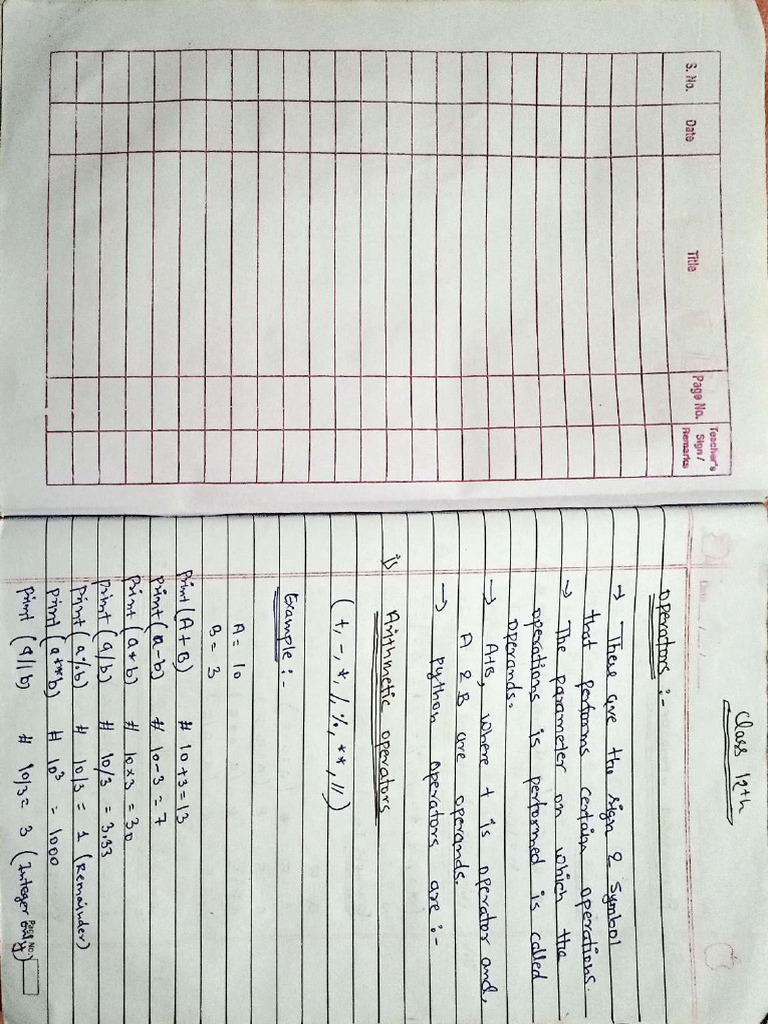 S. No. Date Title Page No. Teacher's Sign / Remarks
Class 12th
operators :-
→ These are the sign & Symbol
that performs certain operations.
→ The parameter on which the
operations is performed is called
operands.
→ A+B, where + is operator and,
A & B are operands.
→ python operators are :-
i) Arithmetic operators
(+, -, *, /, %, **, //)
Example :-
A = 10
B = 3
print(A+B) # 10+3=13
print(a-b) # 10-3 = 7
print(a*b) # 10×3 = 30
print(a/b) # 10/3 = 3.33
print(a%b) # 10/3 = 1 (Remainder)
print(a**b) # 10³ = 1000
print (a//b) # 10/3 = 3 (Integer only)
Page No.